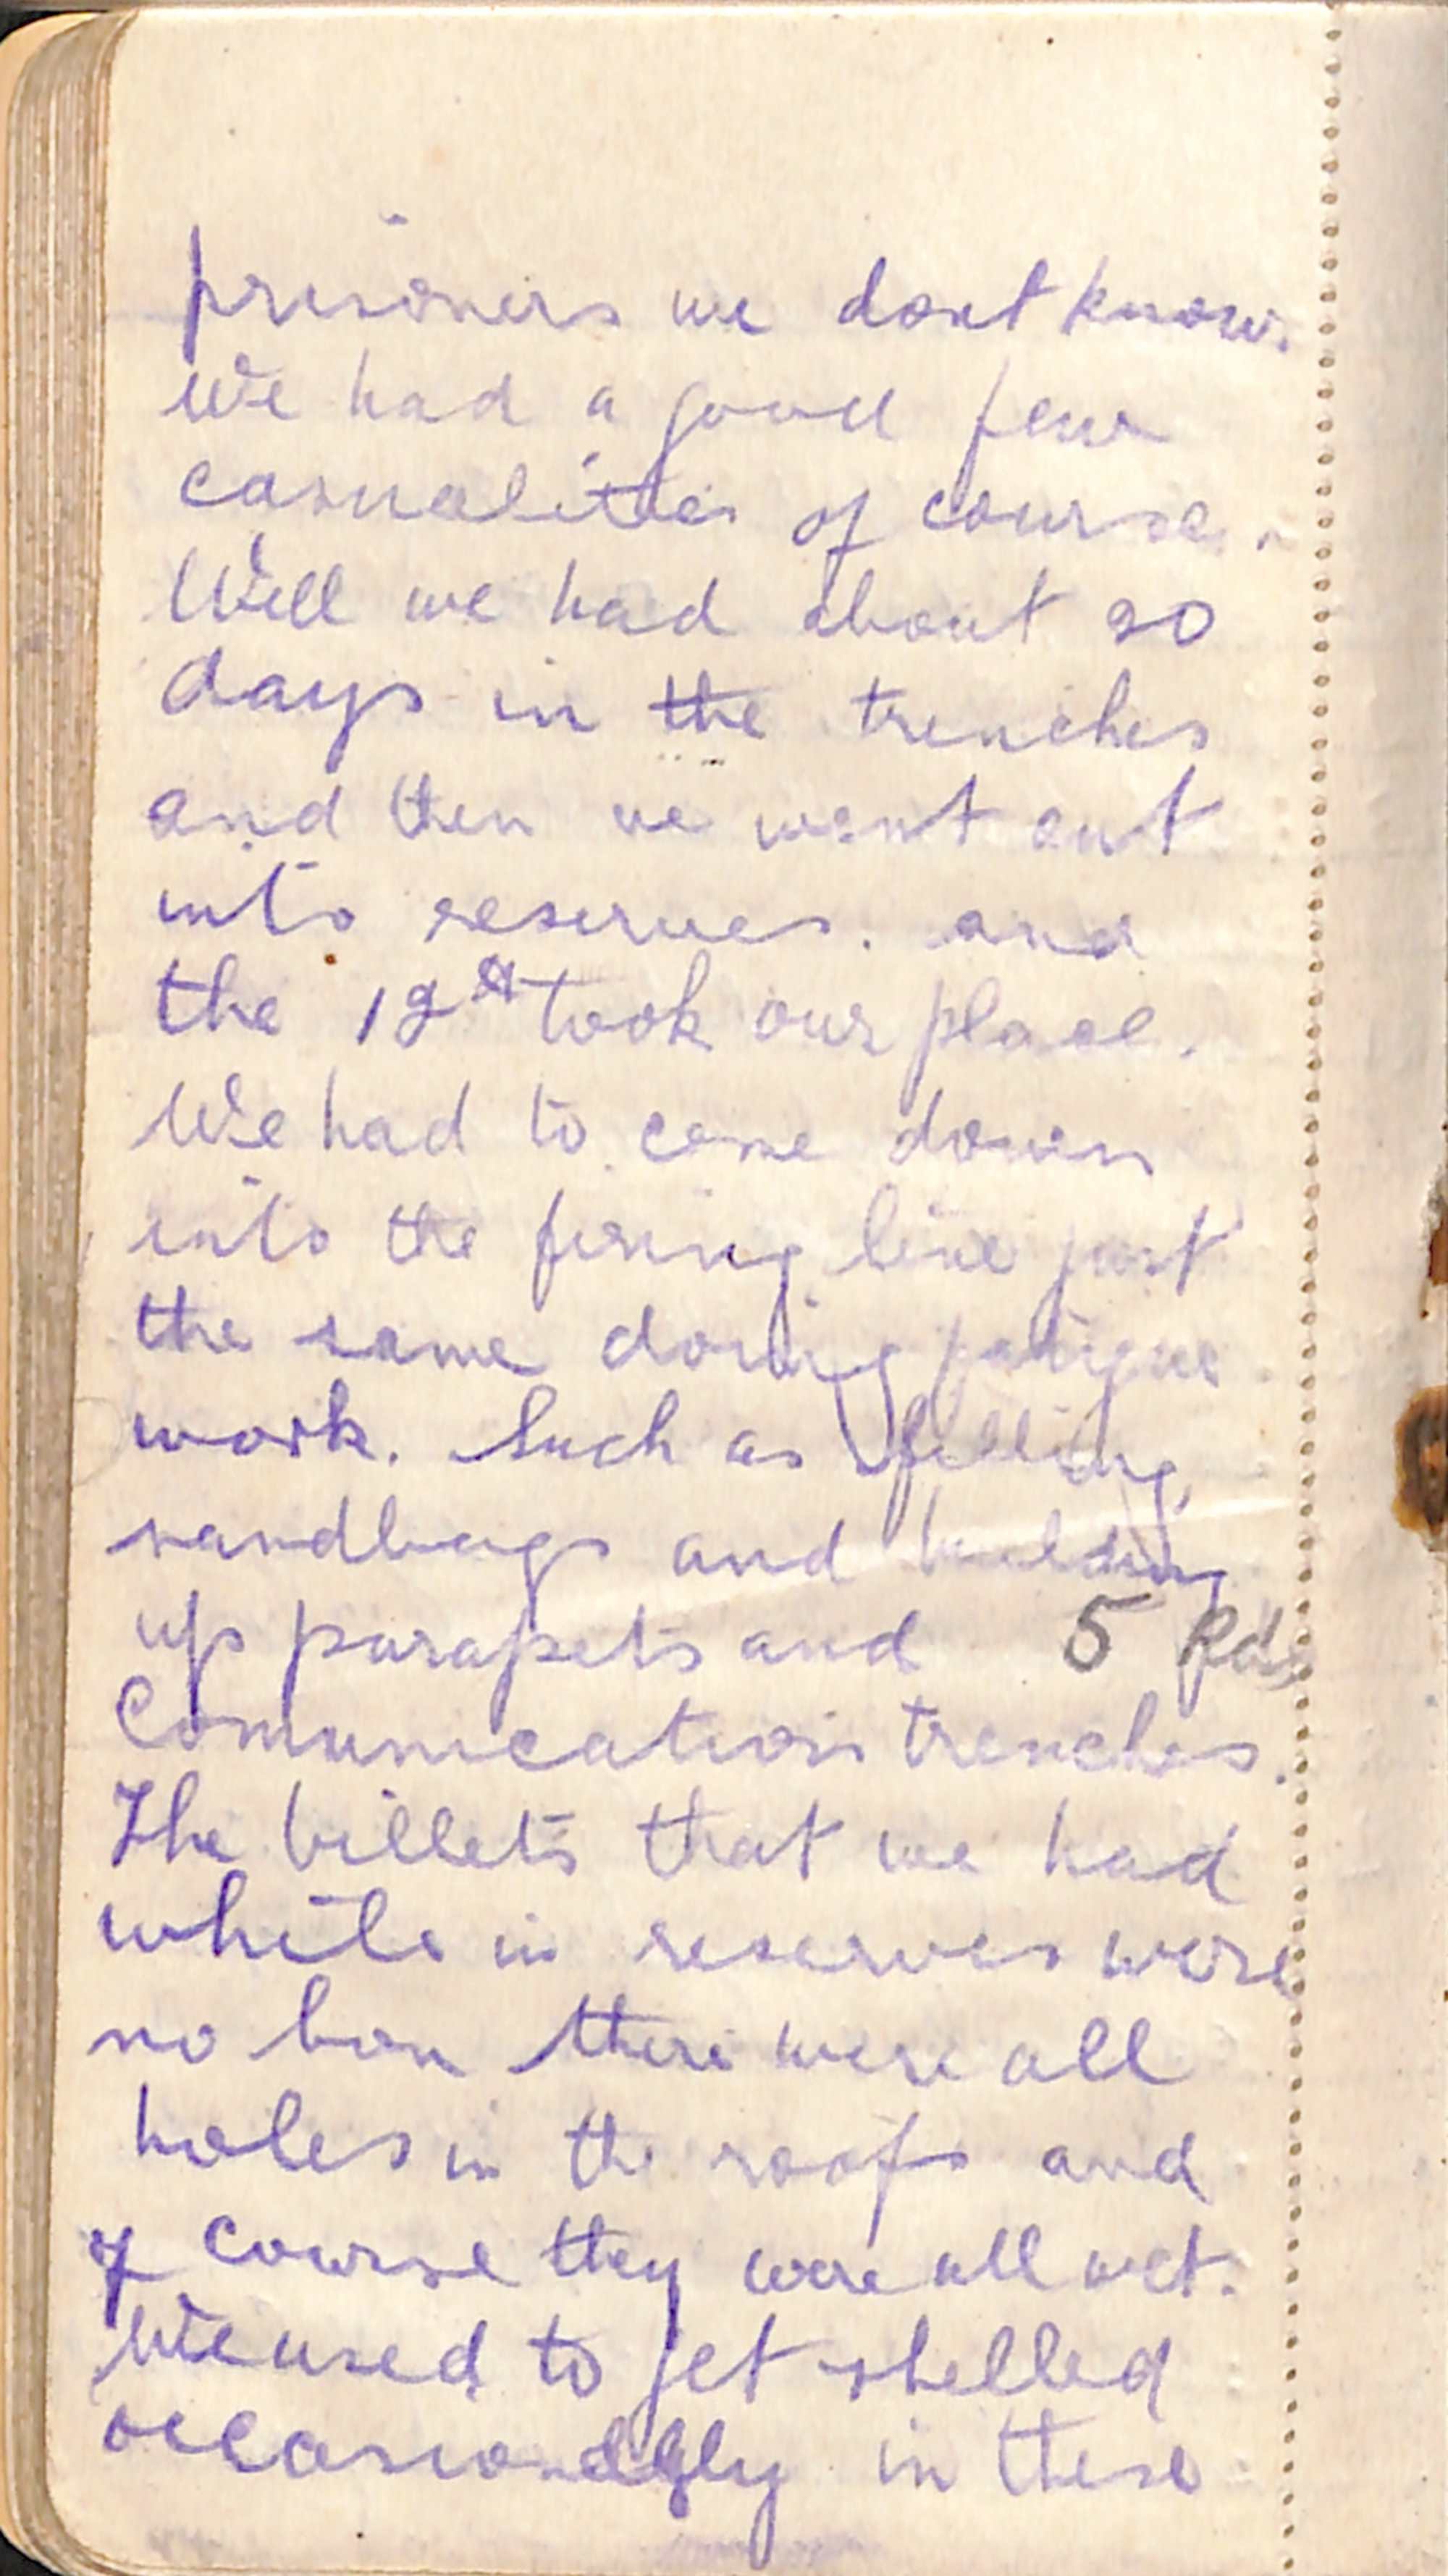 prisoners we dont know.
We had a good few
casualities of course.
Well we had about 20
days in the trenches
and then we went out
into reserves. and
the 12th took our place.
We had to come down
into the firing line just
the same doing fatigue
work. Such as filling
sandbags and building
up parapets and 5 Rds
Comunication trenches.
The billets that we had
while in reserves were
no bon there were all
holes in the roofs and
of course they were all wet.
We used to get shelled
occasionally in these